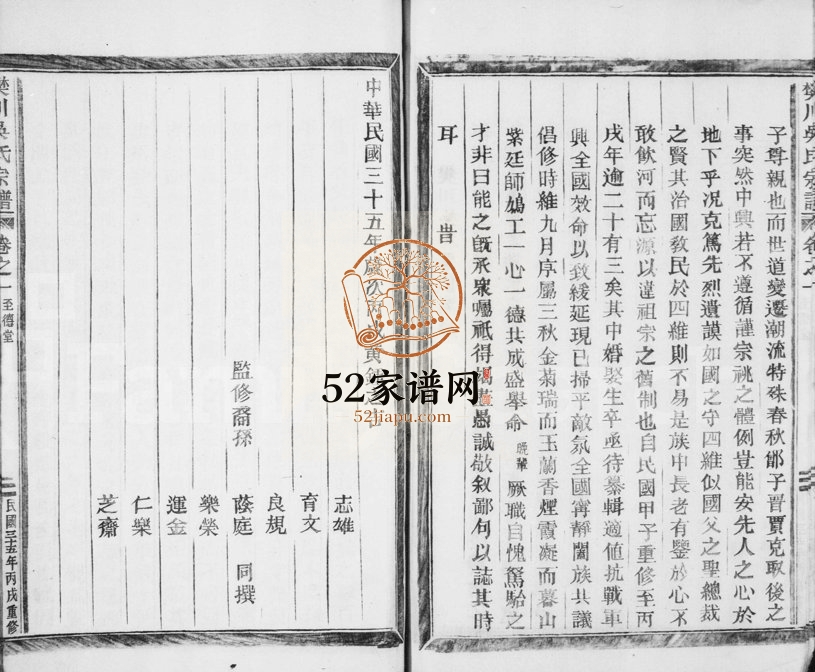 樊川吳氏宗譜 卷之一
子尊親也而世道變遷潮流特殊春秋鄫子晉賈克取後之
事突然中興若不遵循謹宗祧之體例豈能安先人之心於
地下乎況克篤先烈遺謨如國之守四維似國父之聖總裁
之賢其治國教民於四維則不易是族中長老有鑒於心不
敢飲河而忘源以違祖宗之舊制也自民國甲子重修至丙
戌年逾二十有三矣其中婚娶生卒亟待纂輯適值抗戰軍
興全國效命以致緩延現已掃平敵氛全國寧靜闔族共議
倡修時維九月序屬三秋金菊瑞而玉蘭香煙霞凝而暮山
紫廷師鳩工一心一德共成盛舉命 晩輩 厥職自愧駑駘之
才非曰能之旣承衆囑祗得竭盡愚誠敬叙鄙句以誌其時
耳 旹
中華民國三十五年歲次丙戌黃
志雄
育文
良規
監修裔孫 蔭庭 同撰
樂榮
運金
仁樂
芝齋
樊川吳氏宗譜 卷之一 至德堂 二 民國三十五年丙戌重修
52家谱网
52jiapu.com